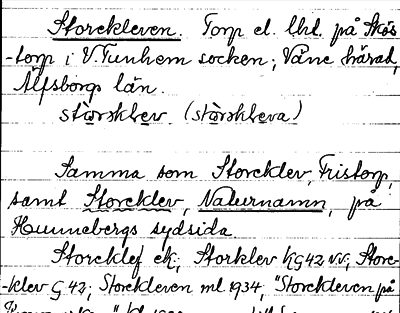 Storekleven. Torp el. lht. på Skös
-torp i V. Tunhem socken; Väne härad,
Älfsborgs län.
stòrskle̱v. (stòrskleva)
Samma som Storeklev, Fristorp,
samt Storeklev, Naturnamn, på
Hunnebergs sydsida
Storeklef ek; Storklev kG42 vv; Store-
-klev G 42; Storekleven ml 1934, "Storekleven på